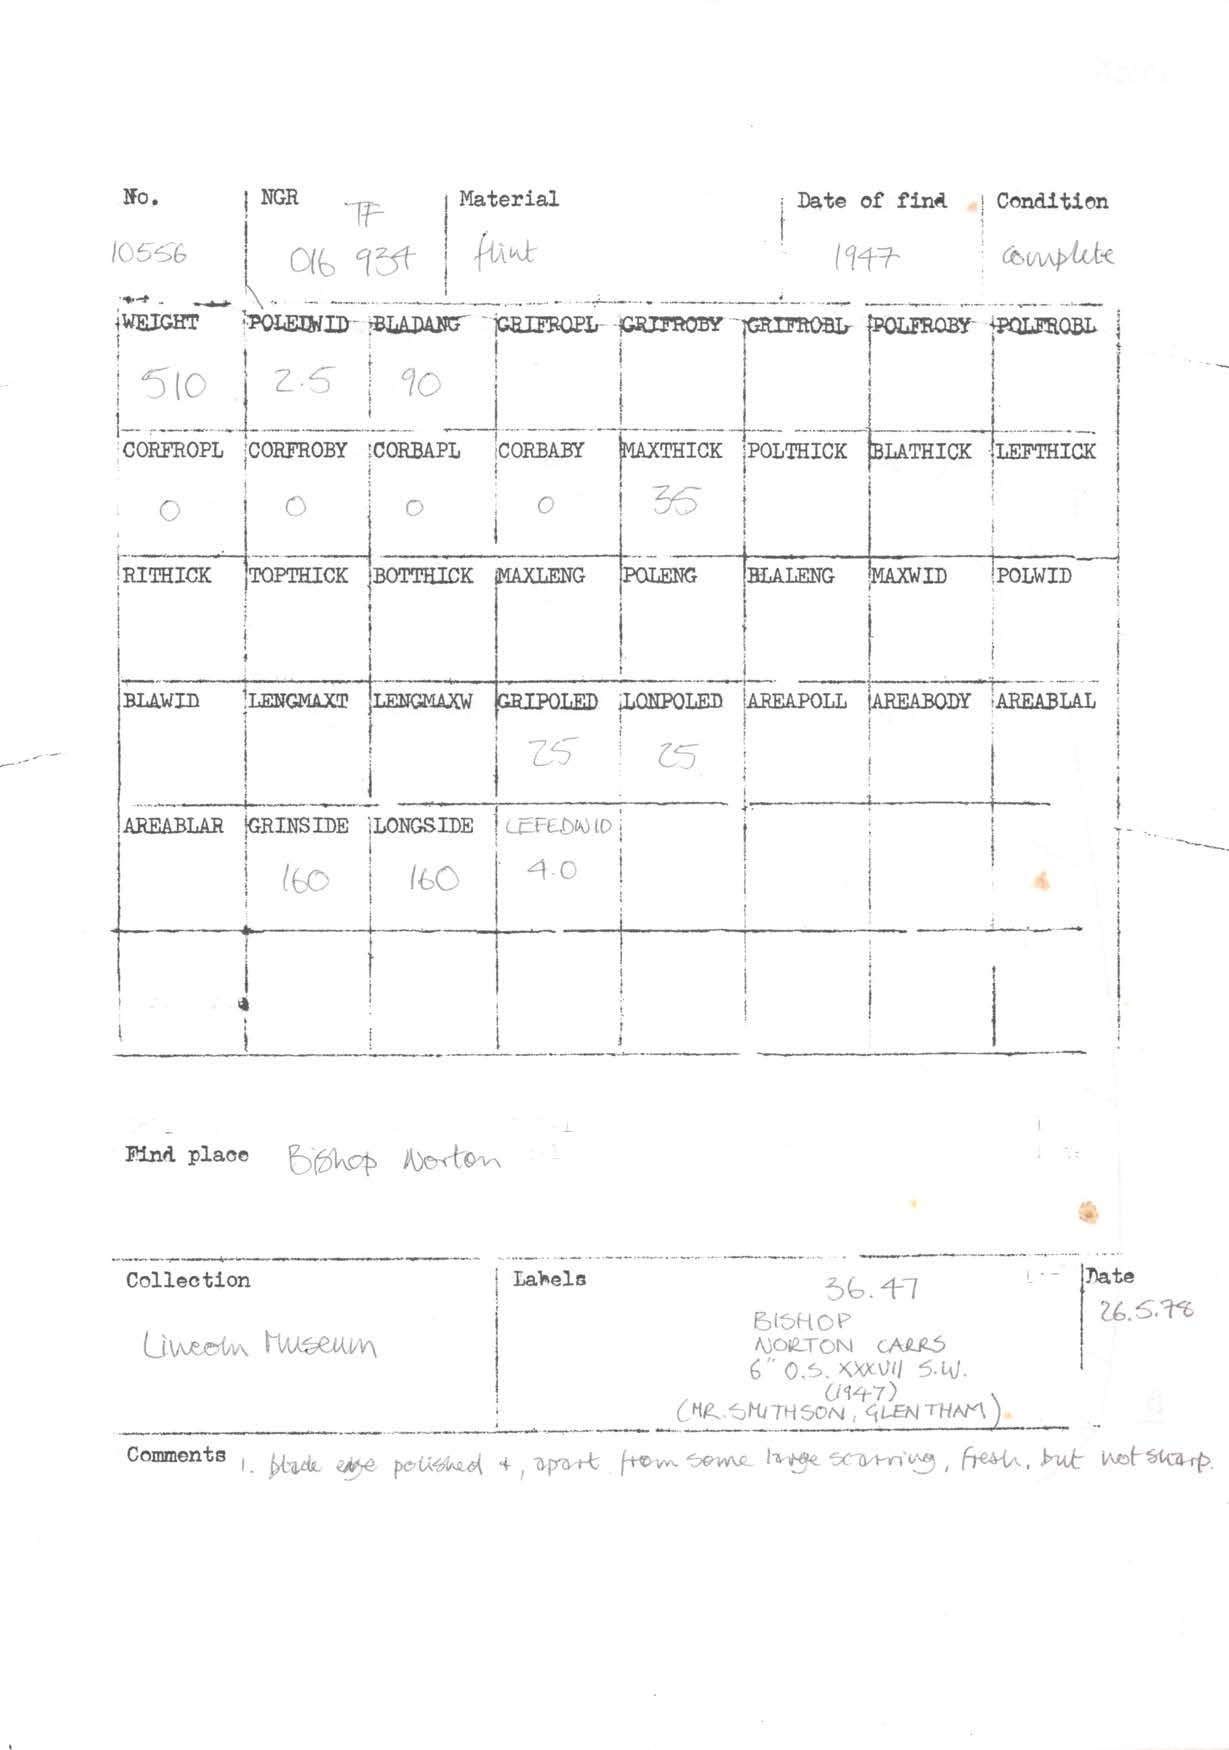 No. NGR TF Material Date of find Condition
10556 016 934 flint 1947 complete
WEIGHT POLEDWID BLADANG GRIFROPL GRIFROBY GRIFROBL POLFROBY POLFROBL
510 2.5 90
CORFROPL CORFROBY CORBAPL CORBABY MAXTHICK POLTHICK BLATHICK LEFTHICK
0 0 0 0 35
RITHICK TOPTHICK BOTTHICK MAXLENG POLENG BLALENG MAXWID POLWID
BLAWID LENGMAXT LENGMAXW GRIPOLED LONPOLED AREAPOLL AREABODY AREABLAL
25 25
AREABLAR GRINSIDE LONGSIDE LEFEDWID
160 160 4.0
Find place Bishop Norton
Collection Labels 36.47 Date
Lincoln Museum
BISHOP
NORTON CARRS
6" O.S. XXXVII S.W.
(1947)
(MR. SMITHSON, GLENTHAM)
26.5.78
Comments 1. blade edge polished +, apart from some large scarring, fresh, but not sharp.